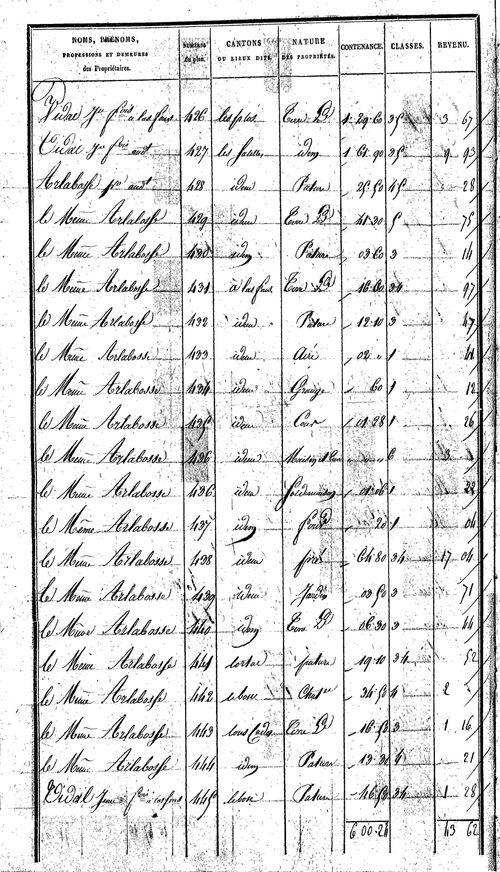 NOMS, PRÉNOMS, PROFESSIONS ET DEMEURES des Propriétaires. NUMÉROS du plan. CANTONS OU LIEUX DITS. NATURE DES PROPRIÉTÉS. CONTENANCE. CLASSES. REVENU.
Vidal Jn fois à las fons 426 Terre Ll 1 29 60 35 3 67
Vidal Jn fois audt 427 idem 1 61 90 35 9 93
Arlabosse audt 428 idem Pature 25 50 45 28
le Même Arlabosse 429 idem Terre Ll 41 30 5 75
le Même Arlabosse 430 idem Pature 03 60 3 14
le Même Arlabosse 431 à las fons Terre Ll 16 80 34 97
le Même Arlabosse 432 idem Pature 12 10 3 47
le Même Arlabosse 433 idem Aire 02 " 1 41
le Même Arlabosse 434 idem Grange 60 1 12
le Même Arlabosse 435 idem Cour 01 28 1 26
le Même Arlabosse 436 idem Maison 6 3
le Même Arlabosse 436 idem 01 06 1 22
le Même Arlabosse 437 idem four 20 1 04
le Même Arlabosse 438 idem pré 64 80 34 17 04
le Même Arlabosse 439 idem Jardin 03 50 3 71
le Même Arlabosse 440 idem Terre Ll 06 30 3 44
le Même Arlabosse 441 lortal pature 19 10 34 52
le Même Arlabosse 442 lebosc 34 50 4 2
le Même Arlabosse 443 Terre Ll 16 50 3 1 16
le Même Arlabosse 444 idem Pature 13 30 4 21
Vidal Jean fois à las fons 445 lebosc Pature 46 50 34 1 28
6 00 24 43 62